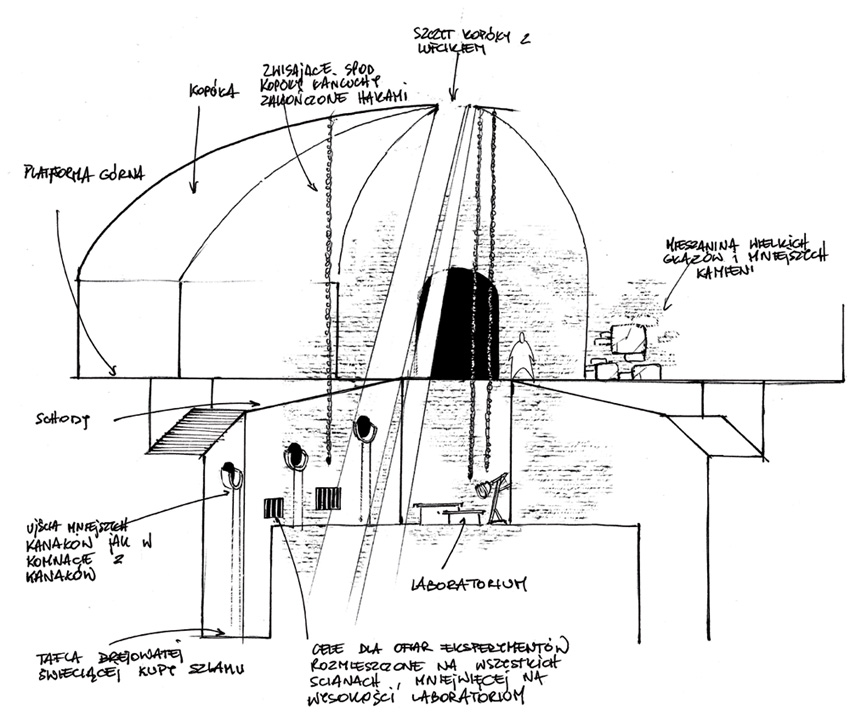 SZCZYT KOPUŁY Z
LUFCIKIEM
ZWISAJĄCE SPOD
KOPUŁY ŁAŃCUCHY
ZAKOŃCZONE HAKAMI
KOPUŁA
PLATFORMA GÓRNA
MIESZANINA WIELKICH
GŁAZÓW I MNIEJSZYCH
KAMIENI
SCHODY
UJŚCIA MNIEJSZYCH
KANAŁÓW JAK W
KOMNACIE Z
KANAŁÓW
LABORATORIUM
TAFLA BREJOWATEJ
ŚWIECĄCEJ KUPY SZLAMU
CELE DLA OFIAR EKSPERYMENTÓW
ROZMIESZCZONE NA WSZYSTKICH
ŚCIANACH, MNIEJWIĘCEJ NA
WYSOKOŚCI LABORATORIUM